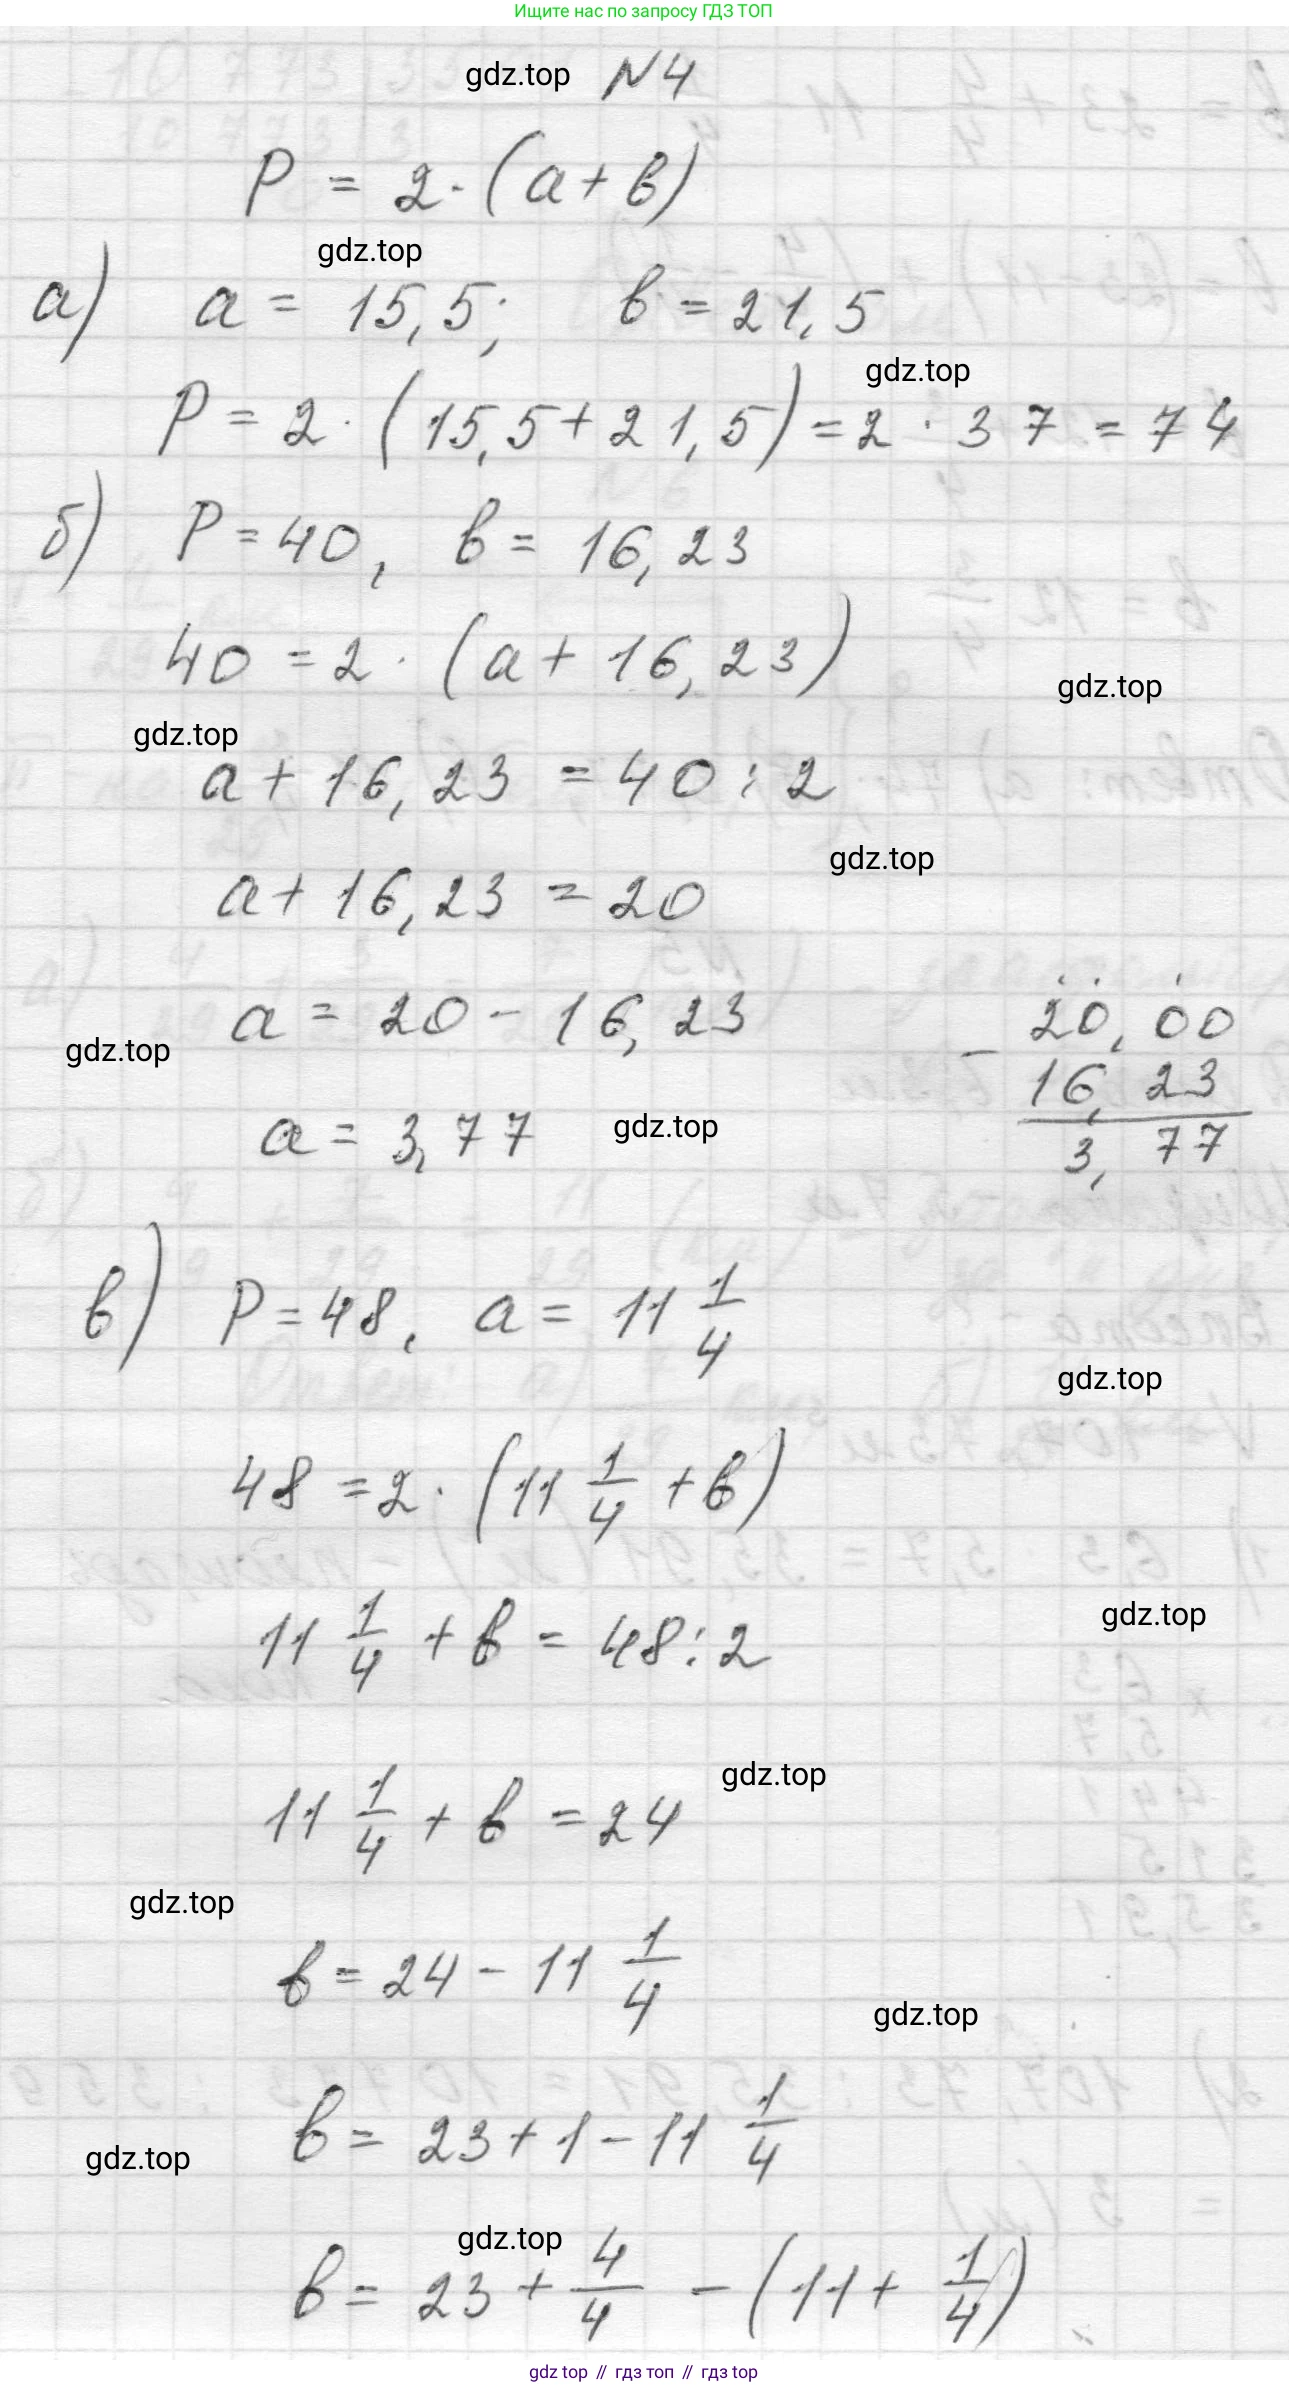 Ищите нас по запросу ГДЗ ТОП
gdz.top N4
P = 2 · (a + b)
gdz.top
а) a = 15,5; b = 21,5
gdz.top
P = 2 · (15,5 + 21,5) = 2 · 37 = 74
б) P = 40, b = 16,23
40 = 2 · (a + 16,23)
gdz.top
gdz.top
a + 16,23 = 40 : 2
gdz.top
a + 16,23 = 20
a = 20 - 16,23
gdz.top
a = 3,77
gdz.top
- 20,00
16,23
3,77
в) P = 48, a = 11 1/4
gdz.top
48 = 2 · (11 1/4 + b)
gdz.top
11 1/4 + b = 48 : 2
gdz.top
11 1/4 + b = 24
gdz.top
b = 24 - 11 1/4
gdz.top
b = 23 + 1 - 11 1/4
gdz.top
gdz.top
b = 23 + 4/4 - (11 + 1/4)
gdz top // гдз топ // гдз top